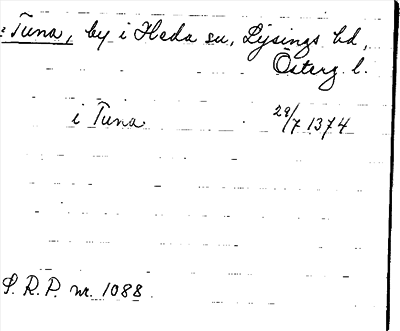 : Tuna, by i Heda sn, Lysings hd,
Österg. l.
i Tuna 29/7 1374
S. R. P. nr. 1088.